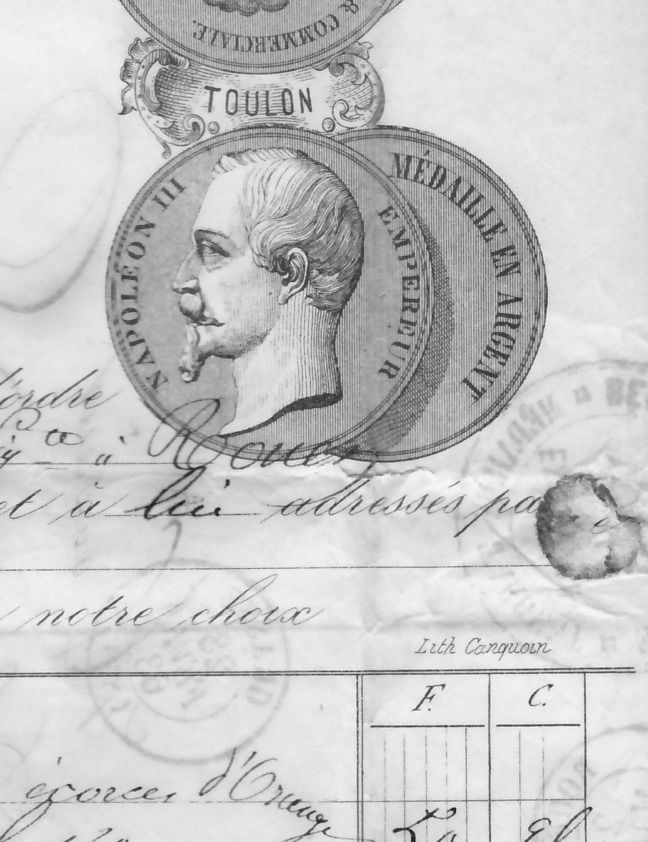 & COMMERCIALE.
TOULON
NAPOLÉON III EMPEREUR
MÉDAILLE EN ARGENT
l'ordre
à Rouen
et à lui adressés pa
notre choix
Lith Canquoin
F. C.
écorces d'Orange